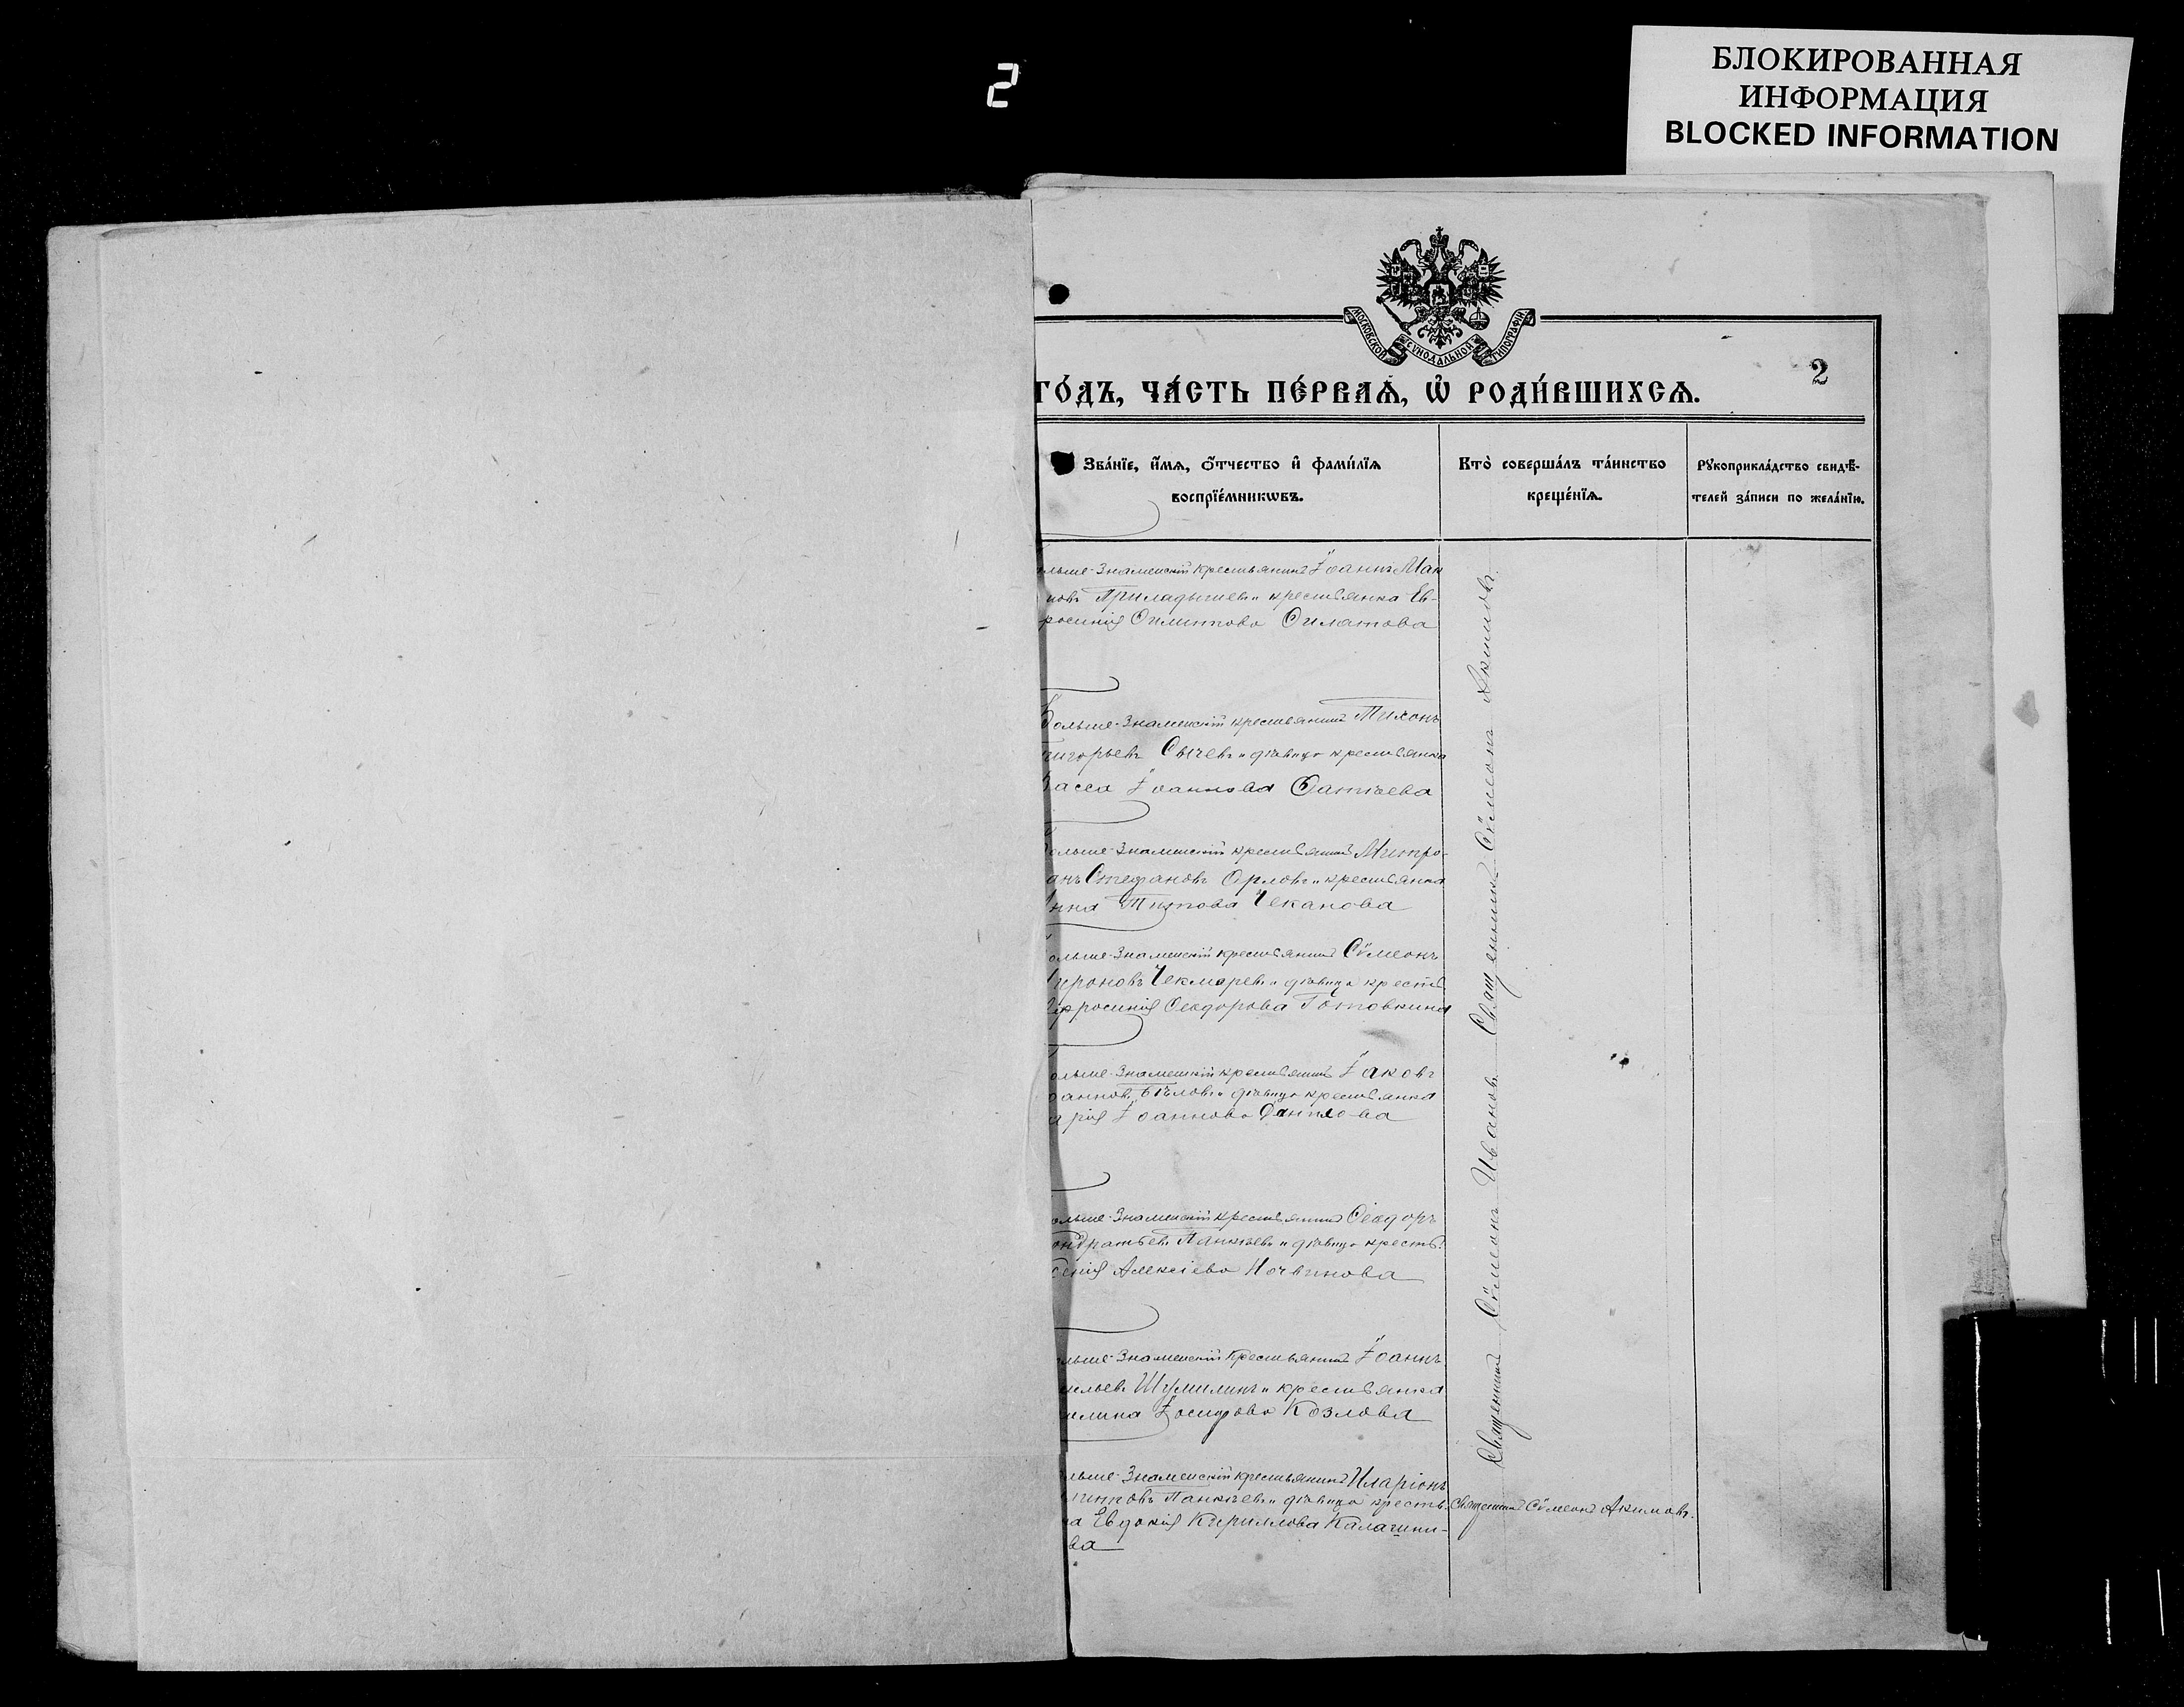 БЛОКИРОВАННАЯ
ИНФОРМАЦИЯ
BLOCKED INFORMATION
2
МОСКОВСКОЙ СѴНОДАЛЬНОЙ ТИПОГРАФІИ
2
ГО́ДЪ, ЧА́СТЬ ПЕ́РВАѦ, Ѡ҆ РОДИ́ВШИХСѦ.
Зва́нїе, и҆́мѧ, ѻ҆́тчество и҆ фами́лїѧ
воспрїе́мникѡвъ.
Кто̀ соверша́лъ та́инство
креще́нїѧ.
Рꙋкоприкла́дство свидѣ́-
телей за́писи по жела́нїю.
льше-Знаменскій крестьянинъ Іоаннъ
Приладышевъ и крестьянка Ев-
росинія Филиппова Филатова
Больше-Знаменскій крестьянинъ Тихонъ
ригорьевъ Сычевъ и дѣвица крестьянка
Васса Іоаннова Фатѣева
ольше-Знаменскій крестьянинъ Митро-
анъ Стефановъ Орловъ и крестьянка
нна Титова Чеканова
ольше-Знаменскій крестьянинъ Сѷмеонъ
ироновъ Чекмаревъ и дѣвица крестья
Ефросинія Ѳеодорова Готовкина
ольше-Знаменскій крестьянинъ Іаковъ
оанновъ Бѣловъ и дѣвица крестьянка
арія Іоаннова Данилова
ольше-Знаменскій крестьянинъ Ѳеодоръ
ондратьевъ Панкѣевъ и дѣвица кресть
сенія Алексіева Ночвинова
льше-Знаменскій крестьянинъ Іоаннъ
ильевъ Шумилинъ и крестьянка
илина Іосифова Козлова
льше-Знаменскій крестьянинъ Иларіонъ
Панкѣевъ и дѣвица кресть-
ка Евдокія Кириллова Калашни-
ва
Священникъ Сѷмеонъ Ивановъ Священникъ Сѷмеонъ Акимовъ
Священникъ Сѷмеонъ Акимовъ.